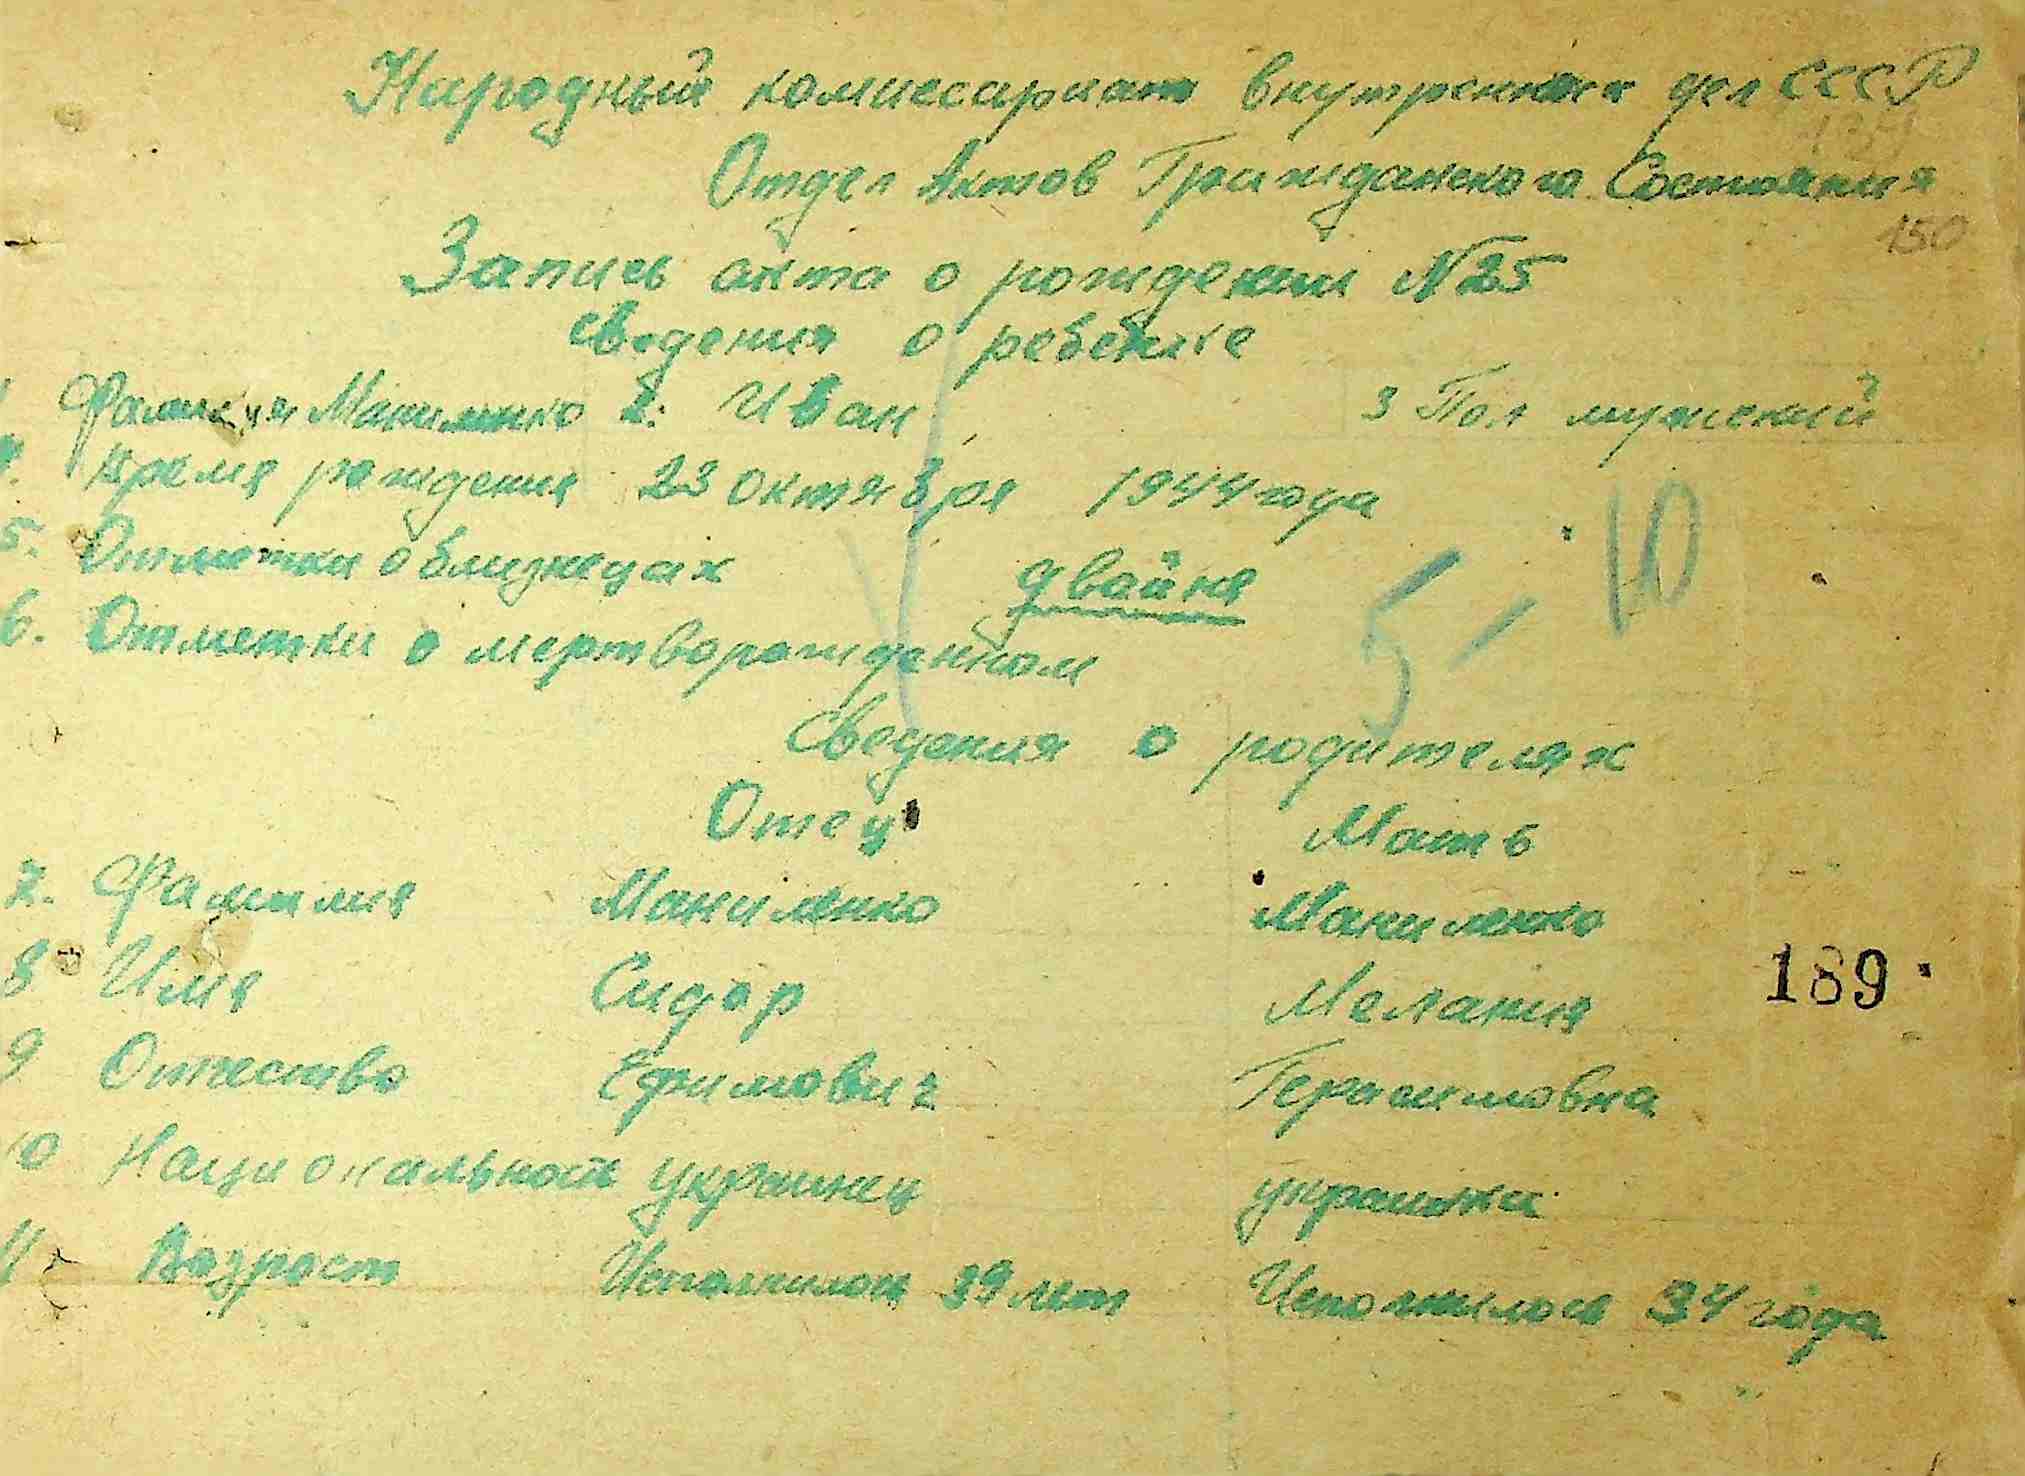 Народный комиссариат внутренних дел СССР
Отдел Актов Гражданского Состояния
150
Запись акта о рождении №25
сведения о ребенке
1 Фамилия Маниленко 2. Иван 3 Пол мужский
4. Время рождения 23 октября 1944 года
5. Отметки о близнецах двайня
6. Отметки о мертворожденном
5-10
Сведения о родителях
Отец Мать
7. Фамилия Маниленко Маниленко
8 Имя Сидор Мелания
189
9 Отчество Ефимович Герасимовна
10 Национальность украинец украинка
11 Возраст Исполнилось 39 лет Исполнилось 34 года